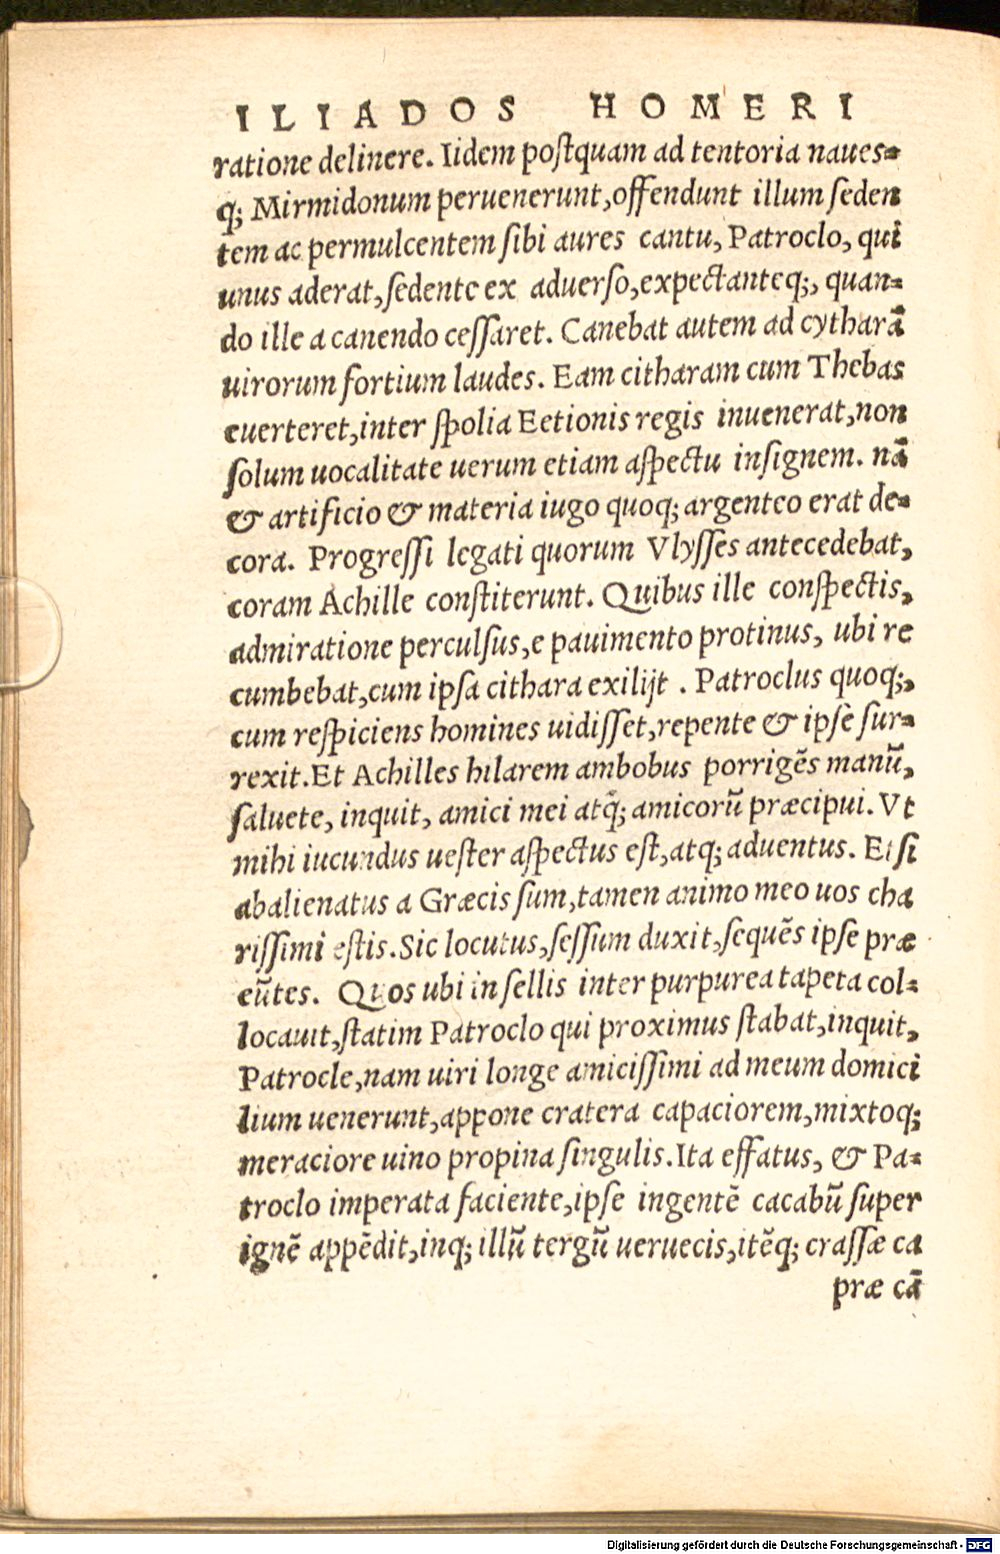 ILIADOS HOMERI
ratione delinere. Iidem postquam ad tentoria naues-
q; Mirmidonum peruenerunt, offendunt illum seden
tem ac permulcentem sibi aures cantu, Patroclo, qui
unus aderat, sedente ex aduerso, expectanteq;, quan-
do ille a canendo cessaret. Canebat autem ad cytharā
uirorum fortium laudes. Eam citharam cum Thebas
euerteret, inter spolia Eetionis regis inuenerat, non
solum uocalitate uerum etiam aspectu insignem. nā
& artificio & materia iugo quoq; argenteo erat de-
cora. Progressi legati quorum Vlysses antecedebat,
coram Achille constiterunt. Quibus ille conspectis,
admiratione perculsus, e pauimento protinus, ubi re
cumbebat, cum ipsa cithara exilijt . Patroclus quoq;,
cum respiciens homines uidisset, repente & ipse sur-
rexit. Et Achilles hilarem ambobus porrigēs manū,
saluete, inquit, amici mei atq; amicorū præcipui. Vt
mihi iucundus uester aspectus est, atq; aduentus. Etsi
abalienatus a Græcis sum, tamen animo meo uos cha
rissimi estis. Sic locutus, sessum duxit, sequēs ipse præ
eūtes. Quos ubi in sellis inter purpurea tapeta col-
locauit, statim Patroclo qui proximus stabat, inquit,
Patrocle, nam uiri longe amicissimi ad meum domici
lium uenerunt, appone cratera capaciorem, mixtoq;
meraciore uino propina singulis. Ita effatus, & Pa-
troclo imperata faciente, ipse ingentē cacabū super
ignē appēdit, inq; illū tergū ueruecis, itēq; crassæ ca
præ cā
Digitalisierung gefördert durch die Deutsche Forschungsgemeinschaft - DFG